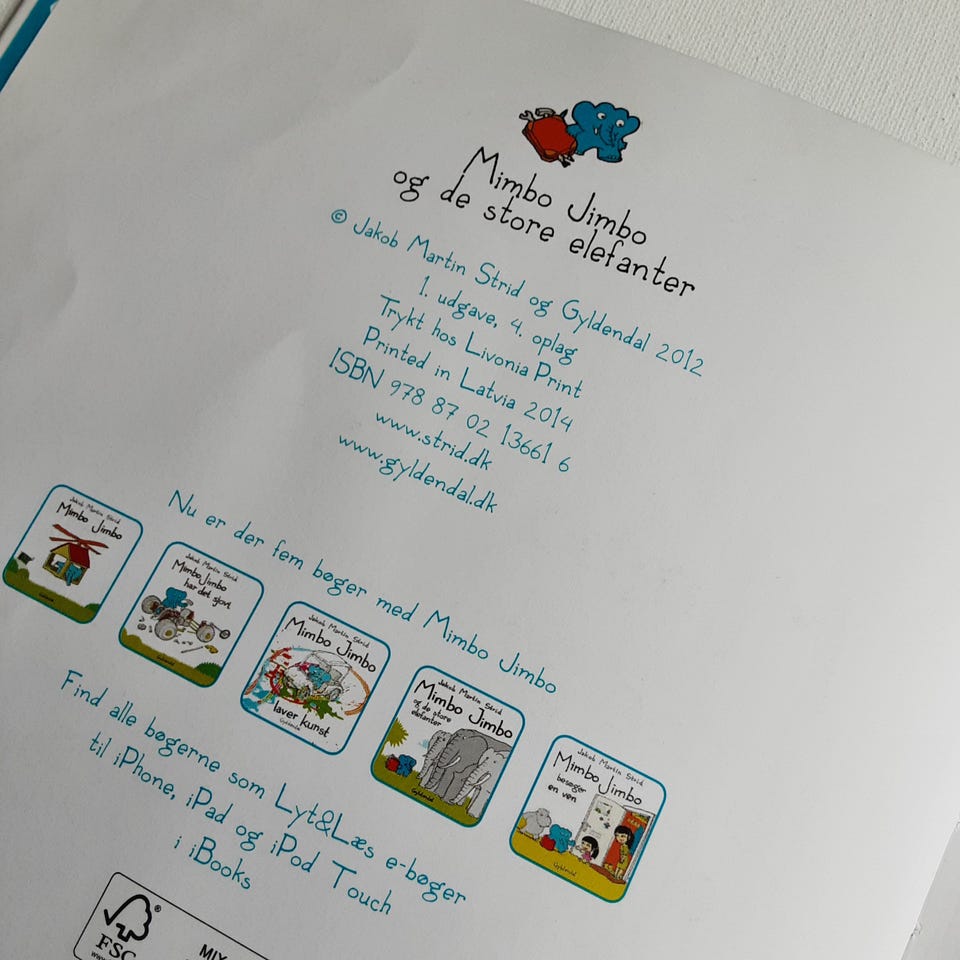 Mimbo Jimbo
og de store elefanter
© Jakob Martin Strid og Gyldendal 2012
1. udgave, 4. oplag
Trykt hos Livonia Print
Printed in Latvia 2014
ISBN 978 87 02 13661 6
www.strid.dk
www.gyldendal.dk
Nu er der fem bøger med Mimbo Jimbo
Jakob Martin Strid
Mimbo Jimbo
Gyldendal
Jakob Martin Strid
Mimbo Jimbo
har det sjovt
Gyldendal
Jakob Martin Strid
Mimbo Jimbo
laver kunst
Gyldendal
Jakob Martin Strid
Mimbo Jimbo
og de store
elefanter
Gyldendal
Jakob Martin Strid
Mimbo Jimbo
besøger
en ven
Gyldendal
Find alle bøgerne som Lyt&Læs e-bøger
til iPhone, iPad og iPod Touch
i iBooks
FSC
MIX